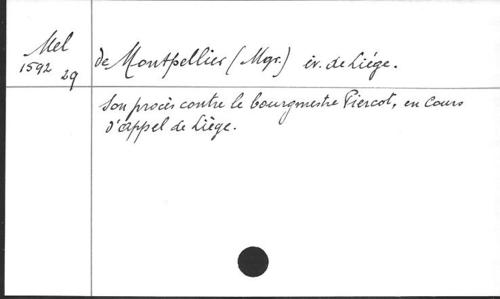 Mel
1592
29
de Montpellier (Mgr.) év. de Liége.
Son procès contre le bourgmestre Piercot, en Cours
d'appel de Liège.